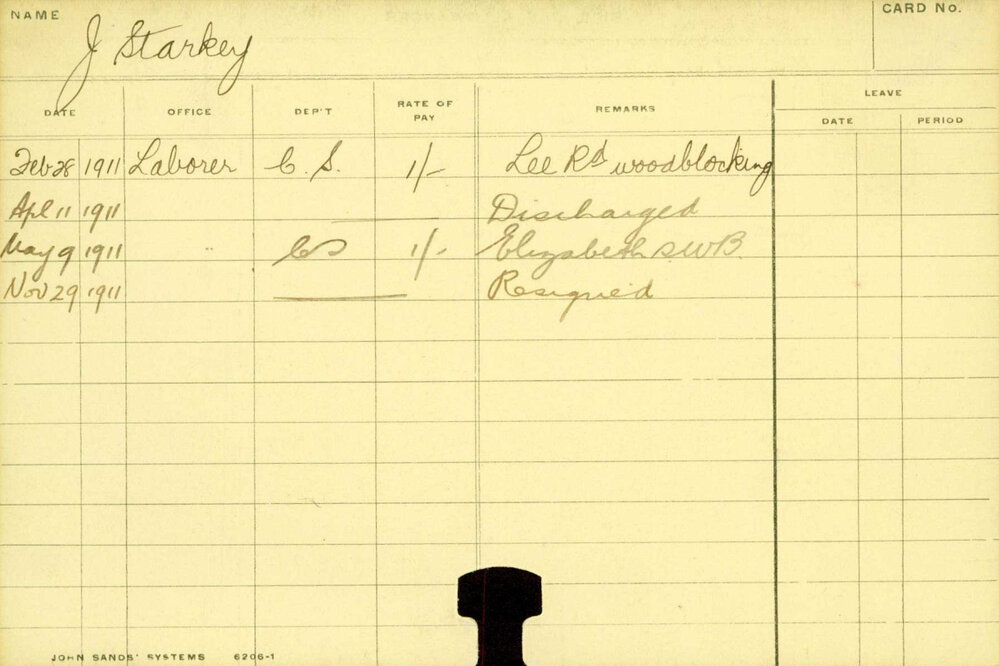 NAME J Starkey CARD No.
DATE OFFICE DEP'T RATE OF PAY REMARKS LEAVE
DATE PERIOD
Feb 28 1911 Laborer C. S. 1/- Lee Rd woodblocking
Apl 11 1911 Discharged
May 9 1911 " CS 1/- Elizabeth S WB.
Nov 29 1911 Resigned
JOHN SANDS' SYSTEMS 6206-1